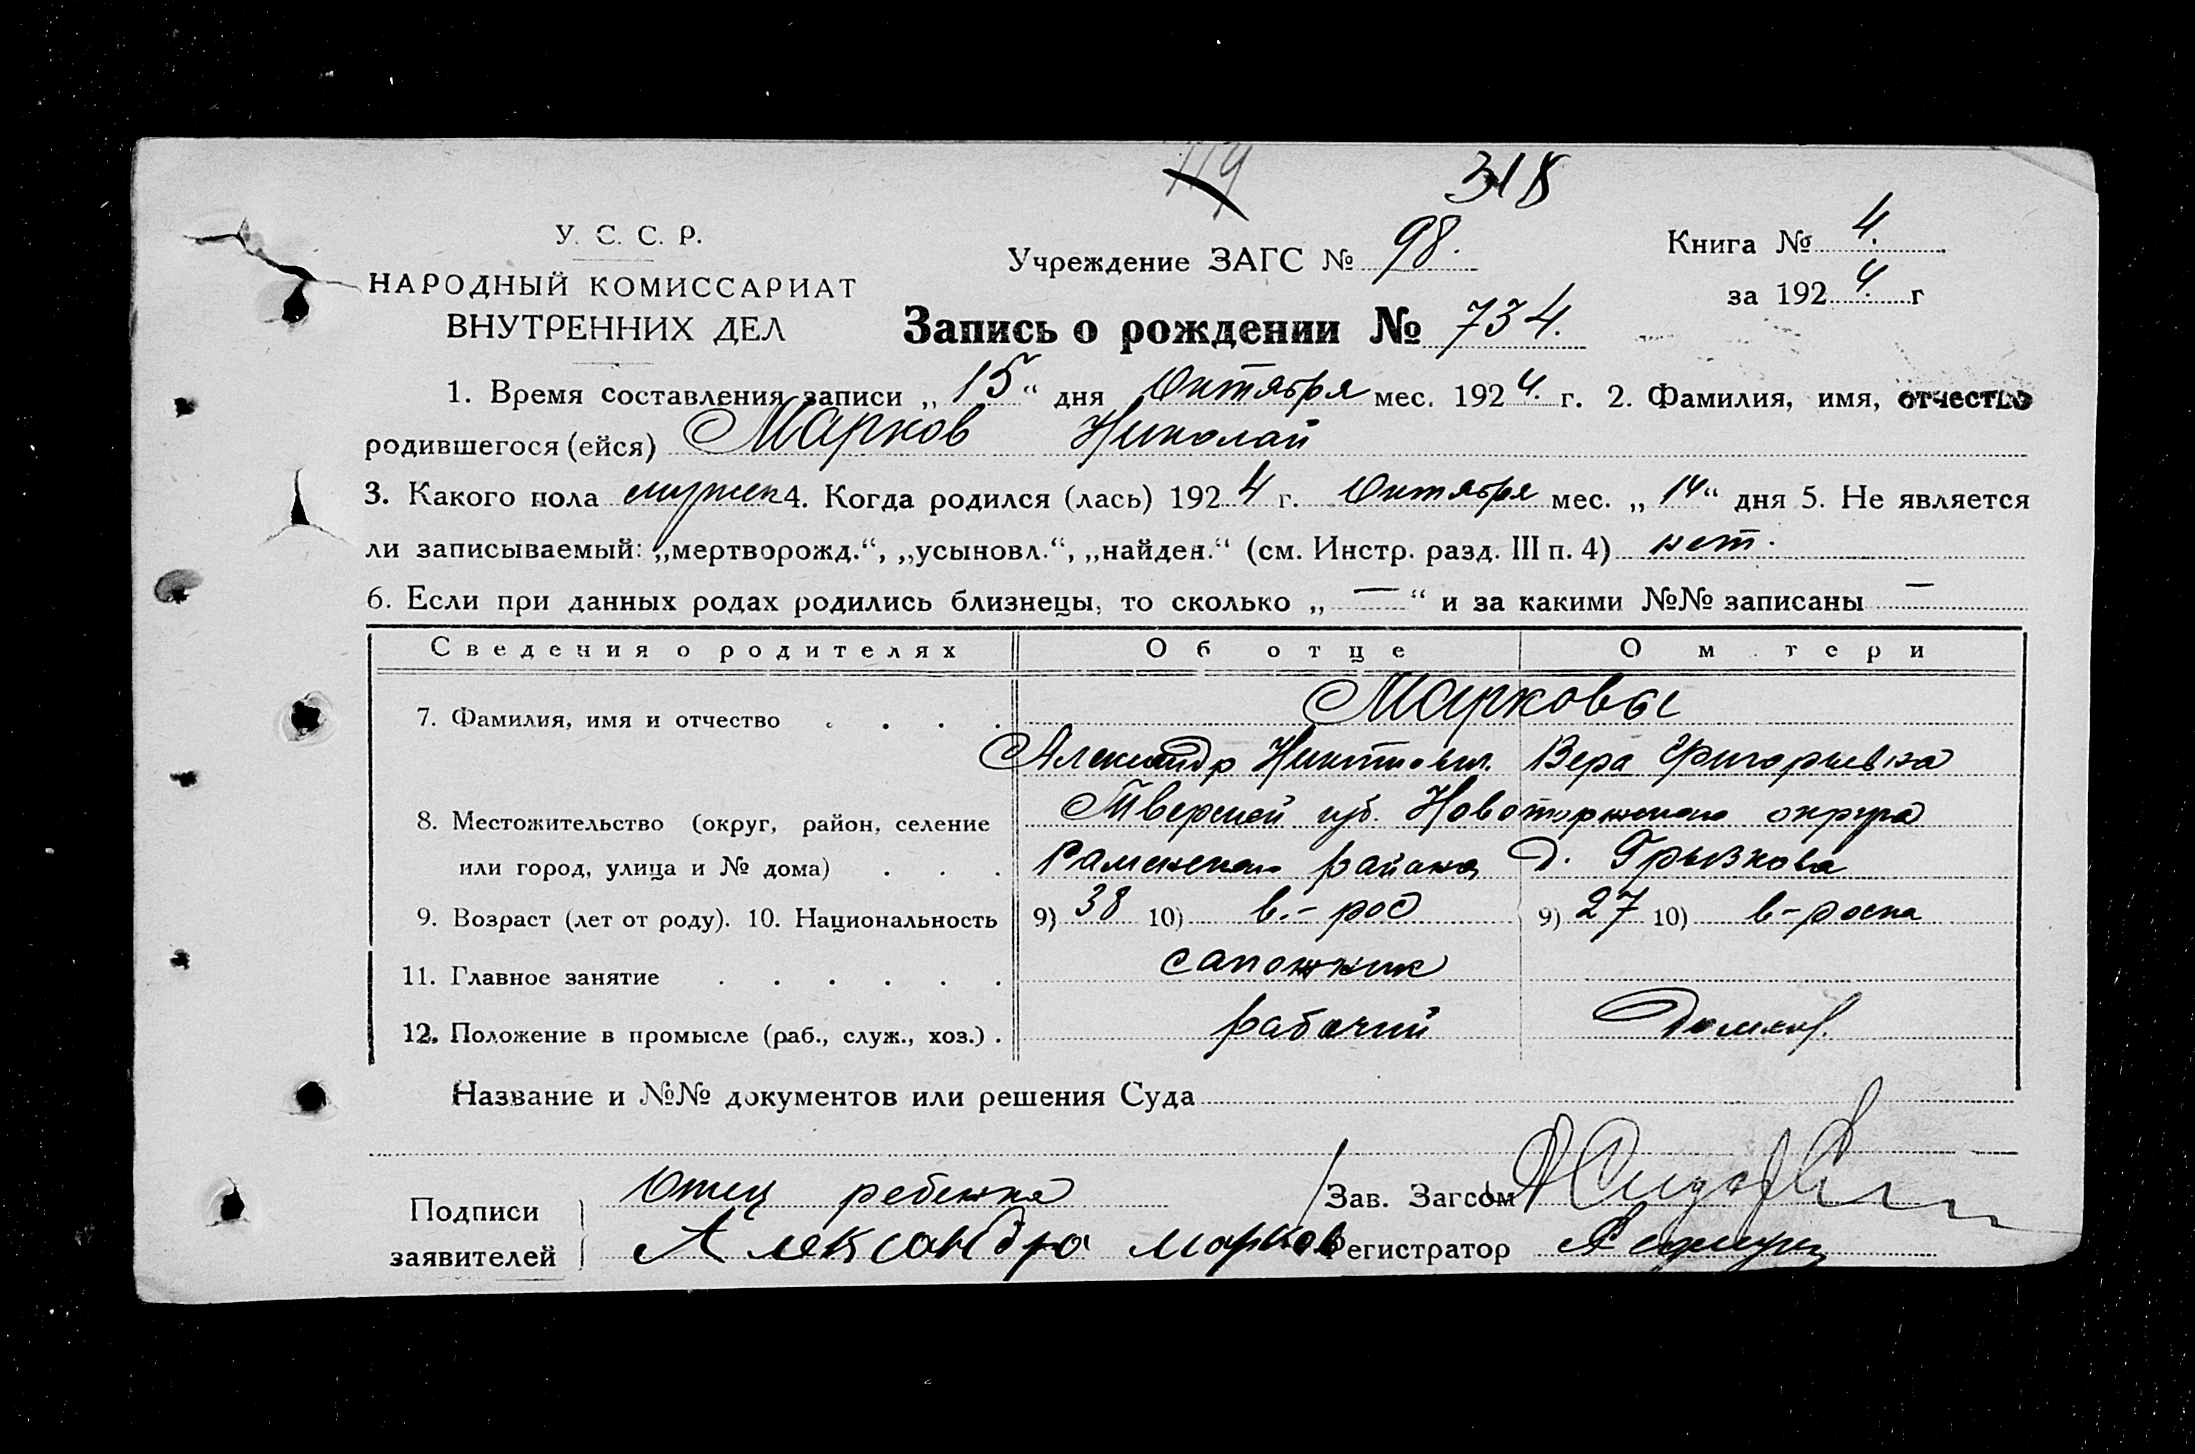 119 318
У. С. С. Р.
НАРОДНЫЙ КОМИССАРИАТ
ВНУТРЕННИХ ДЕЛ
Учреждение ЗАГС № 98.
Книга № 4.
за 1924. г
Запись о рождении № 734.
1. Время составления записи „15“ дня Октября мес. 1924. г. 2. Фамилия, имя, отчество
родившегося (ейся) Марков Николай
3. Какого пола мужск 4. Когда родился (лась) 1924 г. Октября мес. „14“ дня 5. Не является
ли записываемый: „мертворожд.“, „усыновл.“, „найден.“ (см. Инстр. разд. III п. 4) нет.
6. Если при данных родах родились близнецы, то сколько „—“ и за какими №№ записаны —
Сведения о родителях Об отце О м тери
7. Фамилия, имя и отчество . . . . Марковы
Александр Вера Григорьевна
8. Местожительство (округ, район, селение Тверской губ. Новоторжского округа
или город, улица и № дома) . . . Раменского района д. Грызкова
9. Возраст (лет от роду). 10. Национальность 9) 38 10) в.-рос 9) 27 10) в-роска
11. Главное занятие . . . . . . сапожник
12. Положение в промысле (раб., служ., хоз.) . рабочий
Название и №№ документов или решения Суда
Подписи заявителей
Отец ребенка
Александра Марков
Зав. Загсом
Регистратор